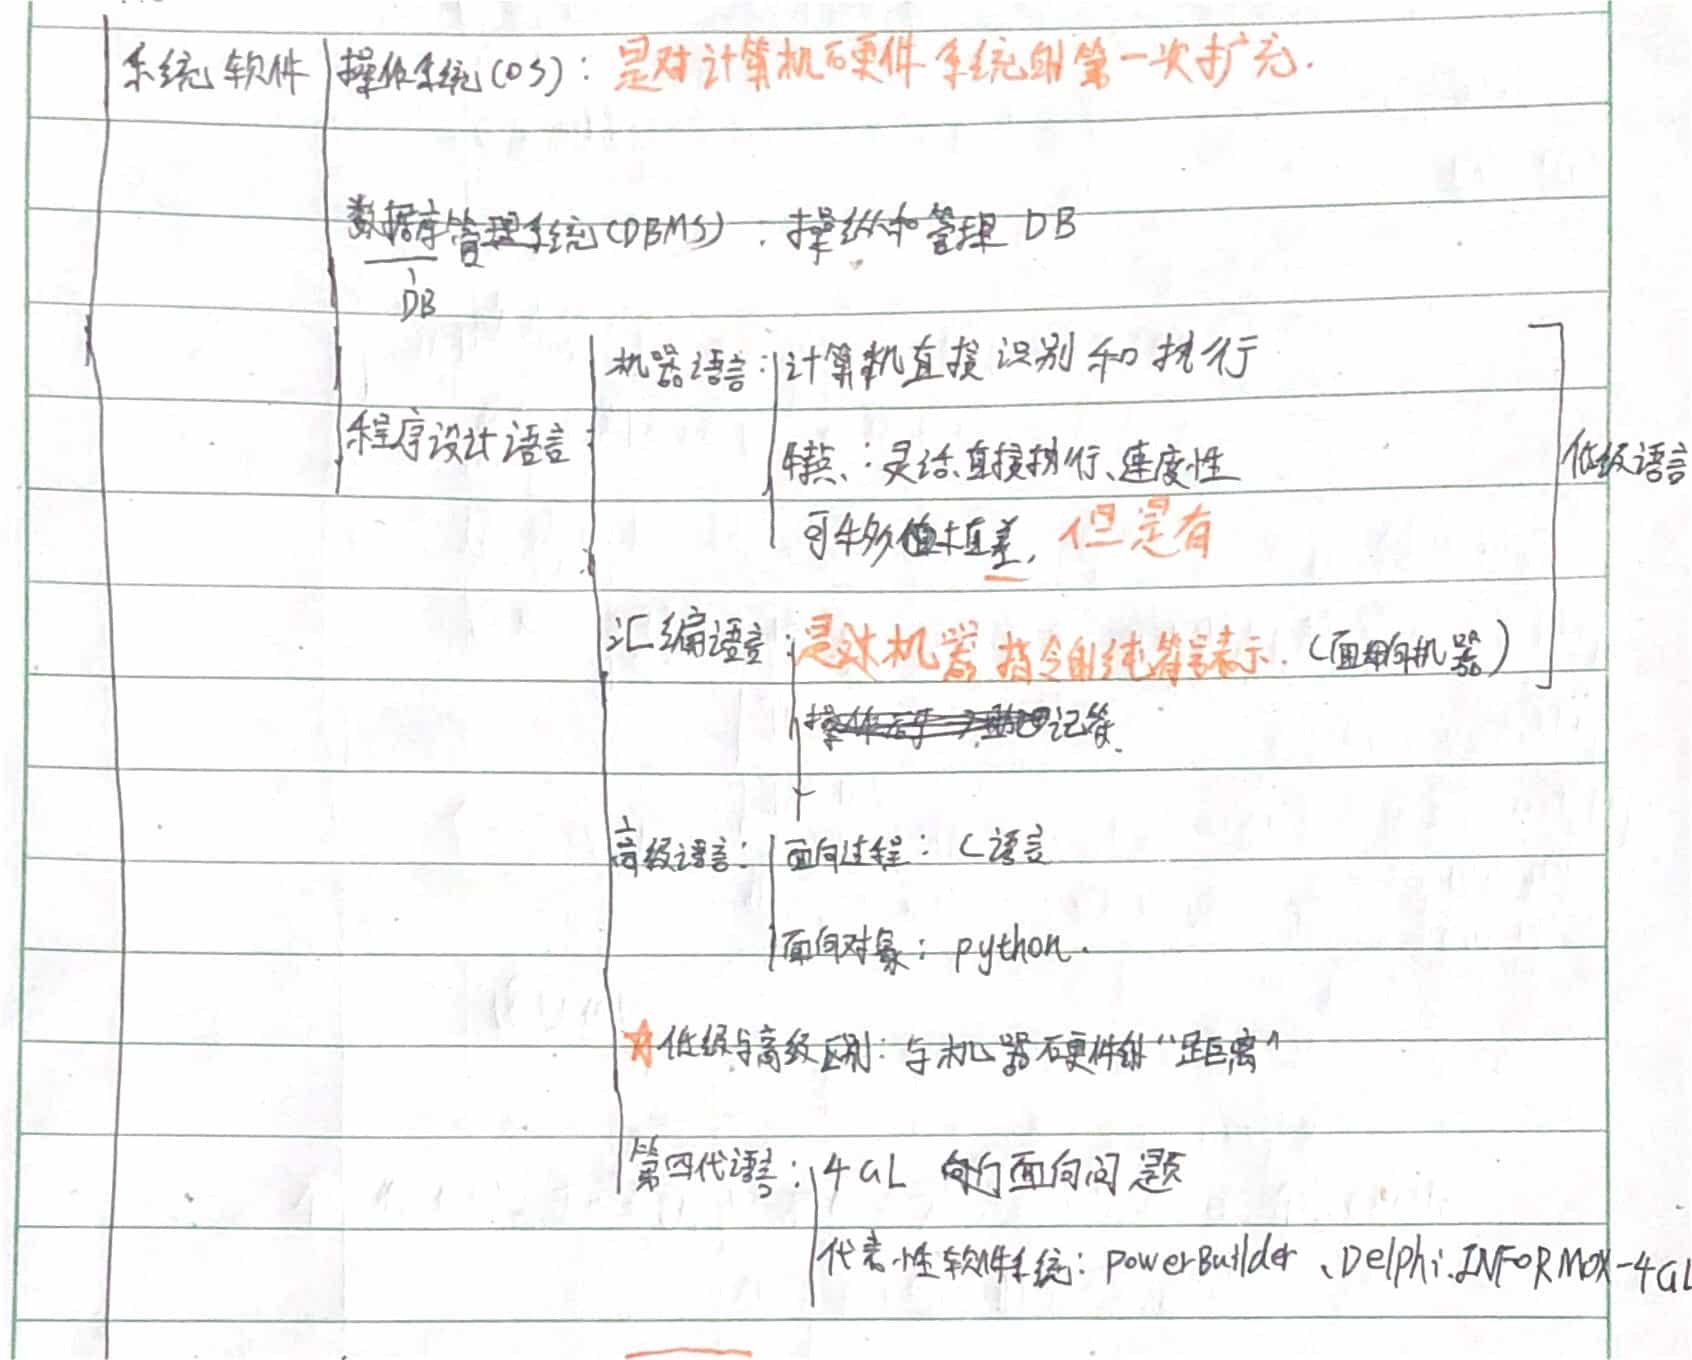 系统软件 操作系统(OS): 是对计算机硬件系统的第一次扩充.
数据库管理系统(DBMS). 操纵和管理 DB
DB
机器语言: 计算机直接识别和执行
程序设计语言
特点: 灵活、直接执行、速度性
低级语言
可移植性差, 但是有
汇编语言: 是对机器指令的纯符号表示. (面向机器)
记符.
高级语言: 面向过程: C语言
面向对象: python.
☆低级与高级区别: 与机器硬件的“距离”
第四代语言: 4GL 面向问题
代表性软件系统: powerBuilder、Delphi.INFORMOX-4GL